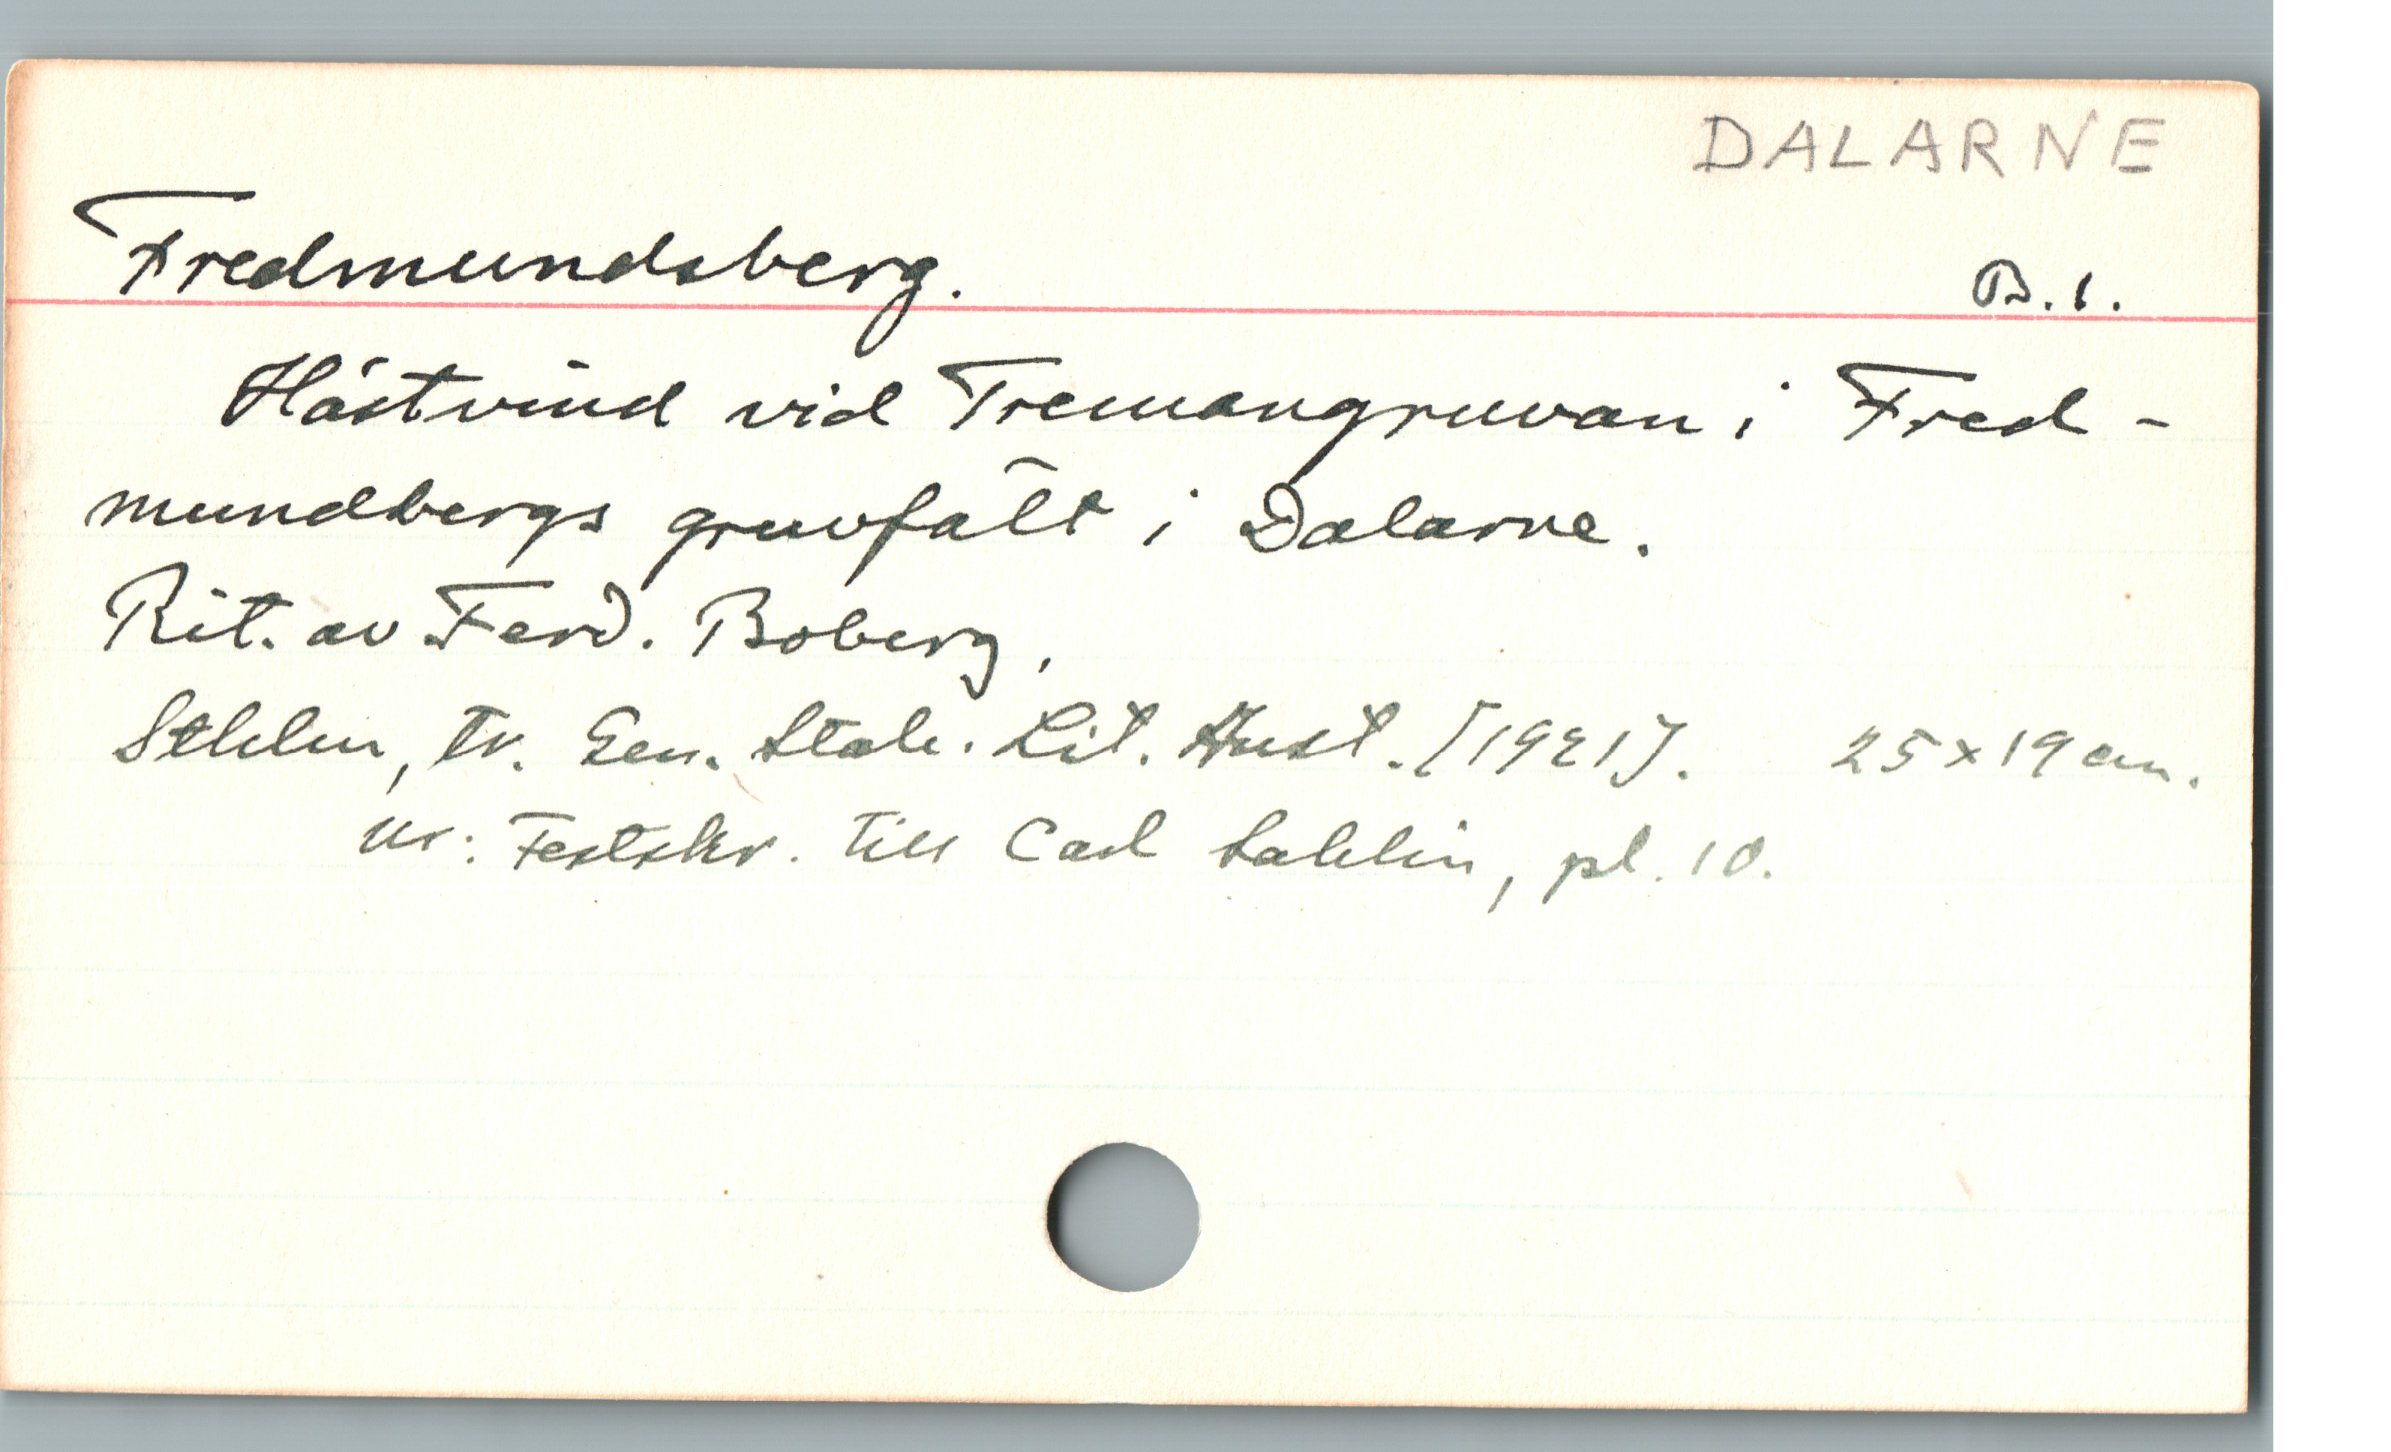 DALARNE
Fredmundsberg.
B.1.
Hästvind vid Tremangruvan i Fred-
mundbergs gruvfält i Dalarne.
Rit. av Ferd. Boberg.
Sthlm, tr. Gen. Stab. Lit. Anst. [1921]. 25 x 19 cm.
Ur: Festskr. till Carl Sahlin, pl. 10.